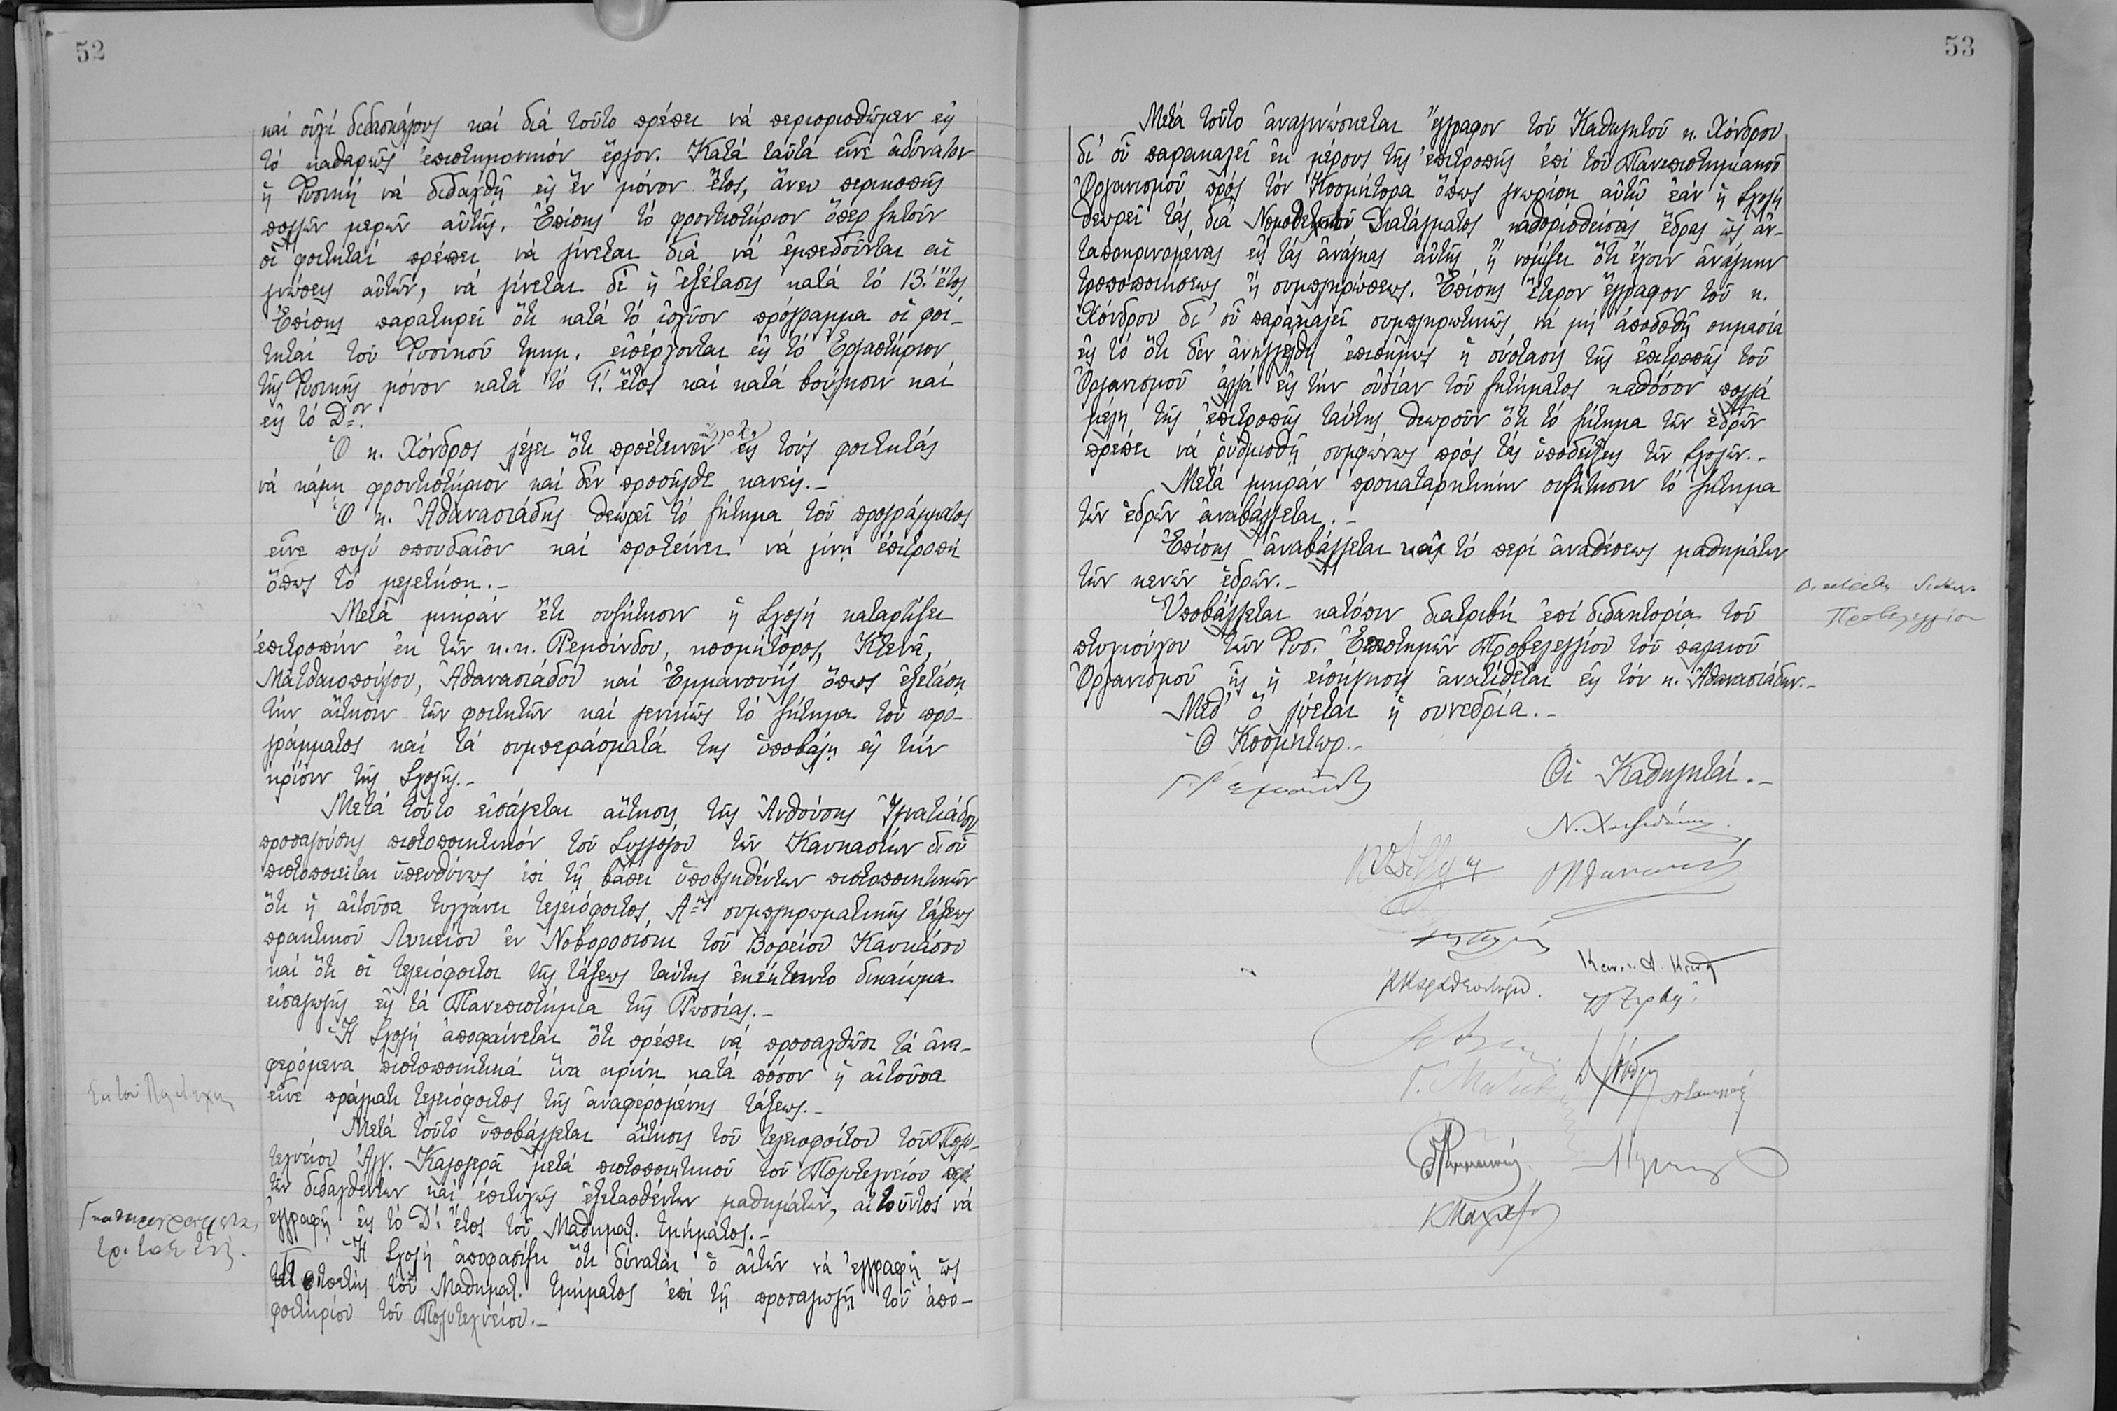 52
καὶ οὐχὶ διδασκάλους καὶ διὰ τοῦτο πρέπει νὰ περιορισθῶμεν εἰς
τὸ καθαρῶς ἐπιστημονικὸν ἔργον. Κατὰ ταῦτα εἶνε ἀδύνατον
ἡ Φυσικὴ νὰ διδαχθῇ εἰς ἓν μόνον ἔτος, ἄνευ περικοπῆς
πολλῶν μερῶν αὐτῆς. Ἐπίσης τὸ φροντιστήριον ὅπερ ζητοῦν
οἱ φοιτηταὶ πρέπει νὰ γίνεται διὰ νὰ ἐμπεδοῦνται αἱ
γνώσεις αὐτῶν, νὰ γίνεται δὲ ἡ ἐξέτασις κατὰ τὸ Β.' ἔτος.
Ἐπίσης παρατηρεῖ ὅτι κατὰ τὸ ἰσχῦον πρόγραμμα οἱ φοι-
τηταὶ τοῦ Φυσικοῦ τμημ. εἰσέρχονται εἰς τὸ Ἐργαστήριον
τῆς Φυσικῆς μόνον κατὰ τὸ Γ.' ἔτος καὶ κατὰ βούλησιν καὶ
εἰς τὸ Δον.
Ὁ κ. Χόνδρος λέγει ὅτι προέτεινεν εἰς τοὺς φοιτητὰς
νὰ κάμῃ φροντιστήριον καὶ δὲν προσῆλθε κανείς.-
Ὁ κ. Ἀθανασιάδης θεωρεῖ τὸ ζήτημα τοῦ προγράμματος
εἶνε πολὺ σπουδαῖον καὶ προτείνει νὰ γίνῃ ἐπιτροπὴ
ὅπως τὸ μελετήσῃ.-
Μετὰ μικρὰν ἔτι συζήτησιν ἡ Σχολὴ καταρτίζει
ἐπιτροπὴν ἐκ τῶν κ.κ. Ρεμούνδου, κοσμήτορος, Κτενᾶ,
Ματθαιοπούλου, Ἀθανασιάδου καὶ Ἐμμανουὴλ ὅπως ἐξετάσῃ
τὴν αἴτησιν τῶν φοιτητῶν καὶ γενικῶς τὸ ζήτημα τοῦ προ-
γράμματος καὶ τὰ συμπεράσματά της ὑποβάλῃ εἰς τὴν
κρίσιν τῆς Σχολῆς.-
Μετὰ τοῦτο εἰσάγεται αἴτησις τῆς Ἀνθούσης Ἰγνατιάδου
προσαγούσης πιστοποιητικὸν τοῦ Συλλόγου τῶν Καυκασίων δι' οὗ
πιστοποιεῖται ὑπευθύνως ἐπὶ τῇ βάσει ὑποβληθέντων πιστοποιητικῶν
ὅτι ἡ αἰτοῦσα τυγχάνει τελειόφοιτος Αης συμπληρωματικῆς τάξεως
πρακτικοῦ Λυκείου ἐν Νοβοροσίσκι τοῦ Βορείου Καυκάσου
καὶ ὅτι οἱ τελειόφοιτοι τῆς τάξεως ταύτης ἐκέκτηντο δικαίωμα
εἰσαγωγῆς εἰς τὰ Πανεπιστήμια τῆς Ρωσσίας.-
Ἡ Σχολὴ ἀποφαίνεται ὅτι πρέπει νὰ προσαχθῶσι τὰ ἀνα-
φερόμενα πιστοποιητικὰ ἵνα κρίνῃ κατὰ πόσον ἡ αἰτοῦσα
εἶνε πράγματι τελειόφοιτος τῆς ἀναφερομένης τάξεως.-
Μετὰ τοῦτο ὑποβάλλεται αἴτησις τοῦ τελειοφοίτου τοῦ Πολυ-
τεχνείου Ἀλ. Καλογερᾶ μετὰ πιστοποιητικοῦ τοῦ Πολυτεχνείου περὶ
τῶν διδαχθέντων καὶ ἐπιτυχῶς ἐξετασθέντων μαθημάτων, αἰτοῦντος νὰ
ἐγγραφῇ εἰς τὸ Δ.' ἔτος τοῦ Μαθηματ. τμήματος.-
Ἡ Σχολὴ ἀποφασίζει ὅτι δύναται ὁ αἰτῶν νὰ ἐγγραφῇ ὡς
τοῦ Μαθηματ. τμήματος ἐπὶ τῇ προσαγωγῇ τοῦ ἀπο-
φοιτηρίου τοῦ Πολυτεχνείου.-
53
Μετὰ τοῦτο ἀναγινώσκεται ἔγγραφον τοῦ Καθηγητοῦ κ. Χόνδρου
δι' οὗ παρακαλεῖ ἐκ μέρους τῆς ἐπιτροπῆς ἐπὶ τοῦ Πανεπιστημιακοῦ
Ὀργανισμοῦ πρὸς τὸν Κοσμήτορα ὅπως γνωρίσῃ αὐτῇ ἐὰν ἡ Σχολὴ
θεωρεῖ τὰς διὰ Νομοθετικοῦ Διατάγματος καθορισθείσας ἕδρας ὡς ἀν-
ταποκρινομένας εἰς τὰς ἀνάγκας αὐτῆς ἢ νομίζει ὅτι ἔχουν ἀνάγκην
τροποποιήσεως ἢ συμπληρώσεως. Ἐπίσης ἕτερον ἔγγραφον τοῦ κ.
Χόνδρου δι' οὗ παρακαλεῖ συμπληρωτικῶς νὰ μὴ ἀποδοθῇ σημασία
εἰς τὸ ὅτι δὲν ἀνηγγέλθη ἐπισήμως ἡ σύστασις τῆς ἐπιτροπῆς τοῦ
Ὀργανισμοῦ ἀλλὰ εἰς τὴν οὐσίαν τοῦ ζητήματος καθόσον πολλὰ
μέλη τῆς ἐπιτροπῆς ταύτης θεωροῦν ὅτι τὸ ζήτημα τῶν ἑδρῶν
πρέπει νὰ ρυθμισθῇ συμφώνως πρὸς τὰς ὑποδείξεις τῶν Σχολῶν.-
Μετὰ μικρὰν προκαταρκτικὴν συζήτησιν τὸ ζήτημα
τῶν ἑδρῶν ἀναβάλλεται.-
Ἐπίσης ἀναβάλλεται καὶ τὸ περὶ ἀναθέσεως μαθημάτων
τῶν κενῶν ἑδρῶν.-
Ὑποβάλλεται κατόπιν διατριβὴ ἐπὶ διδακτορίᾳ τοῦ
πτυχιούχου τῶν Φυσ. Ἐπιστημῶν Προβελεγγίου τοῦ παλαιοῦ
Ὀργανισμοῦ ἧς ἡ εἰσήγησις ἀνατίθεται εἰς τὸν κ. Ἀθανασιάδην.-
Προβελεγγίου
Μεθ' ὃ λύεται ἡ συνεδρία.-
Ὁ Κοσμήτωρ.-
Οἱ Καθηγηταί.-